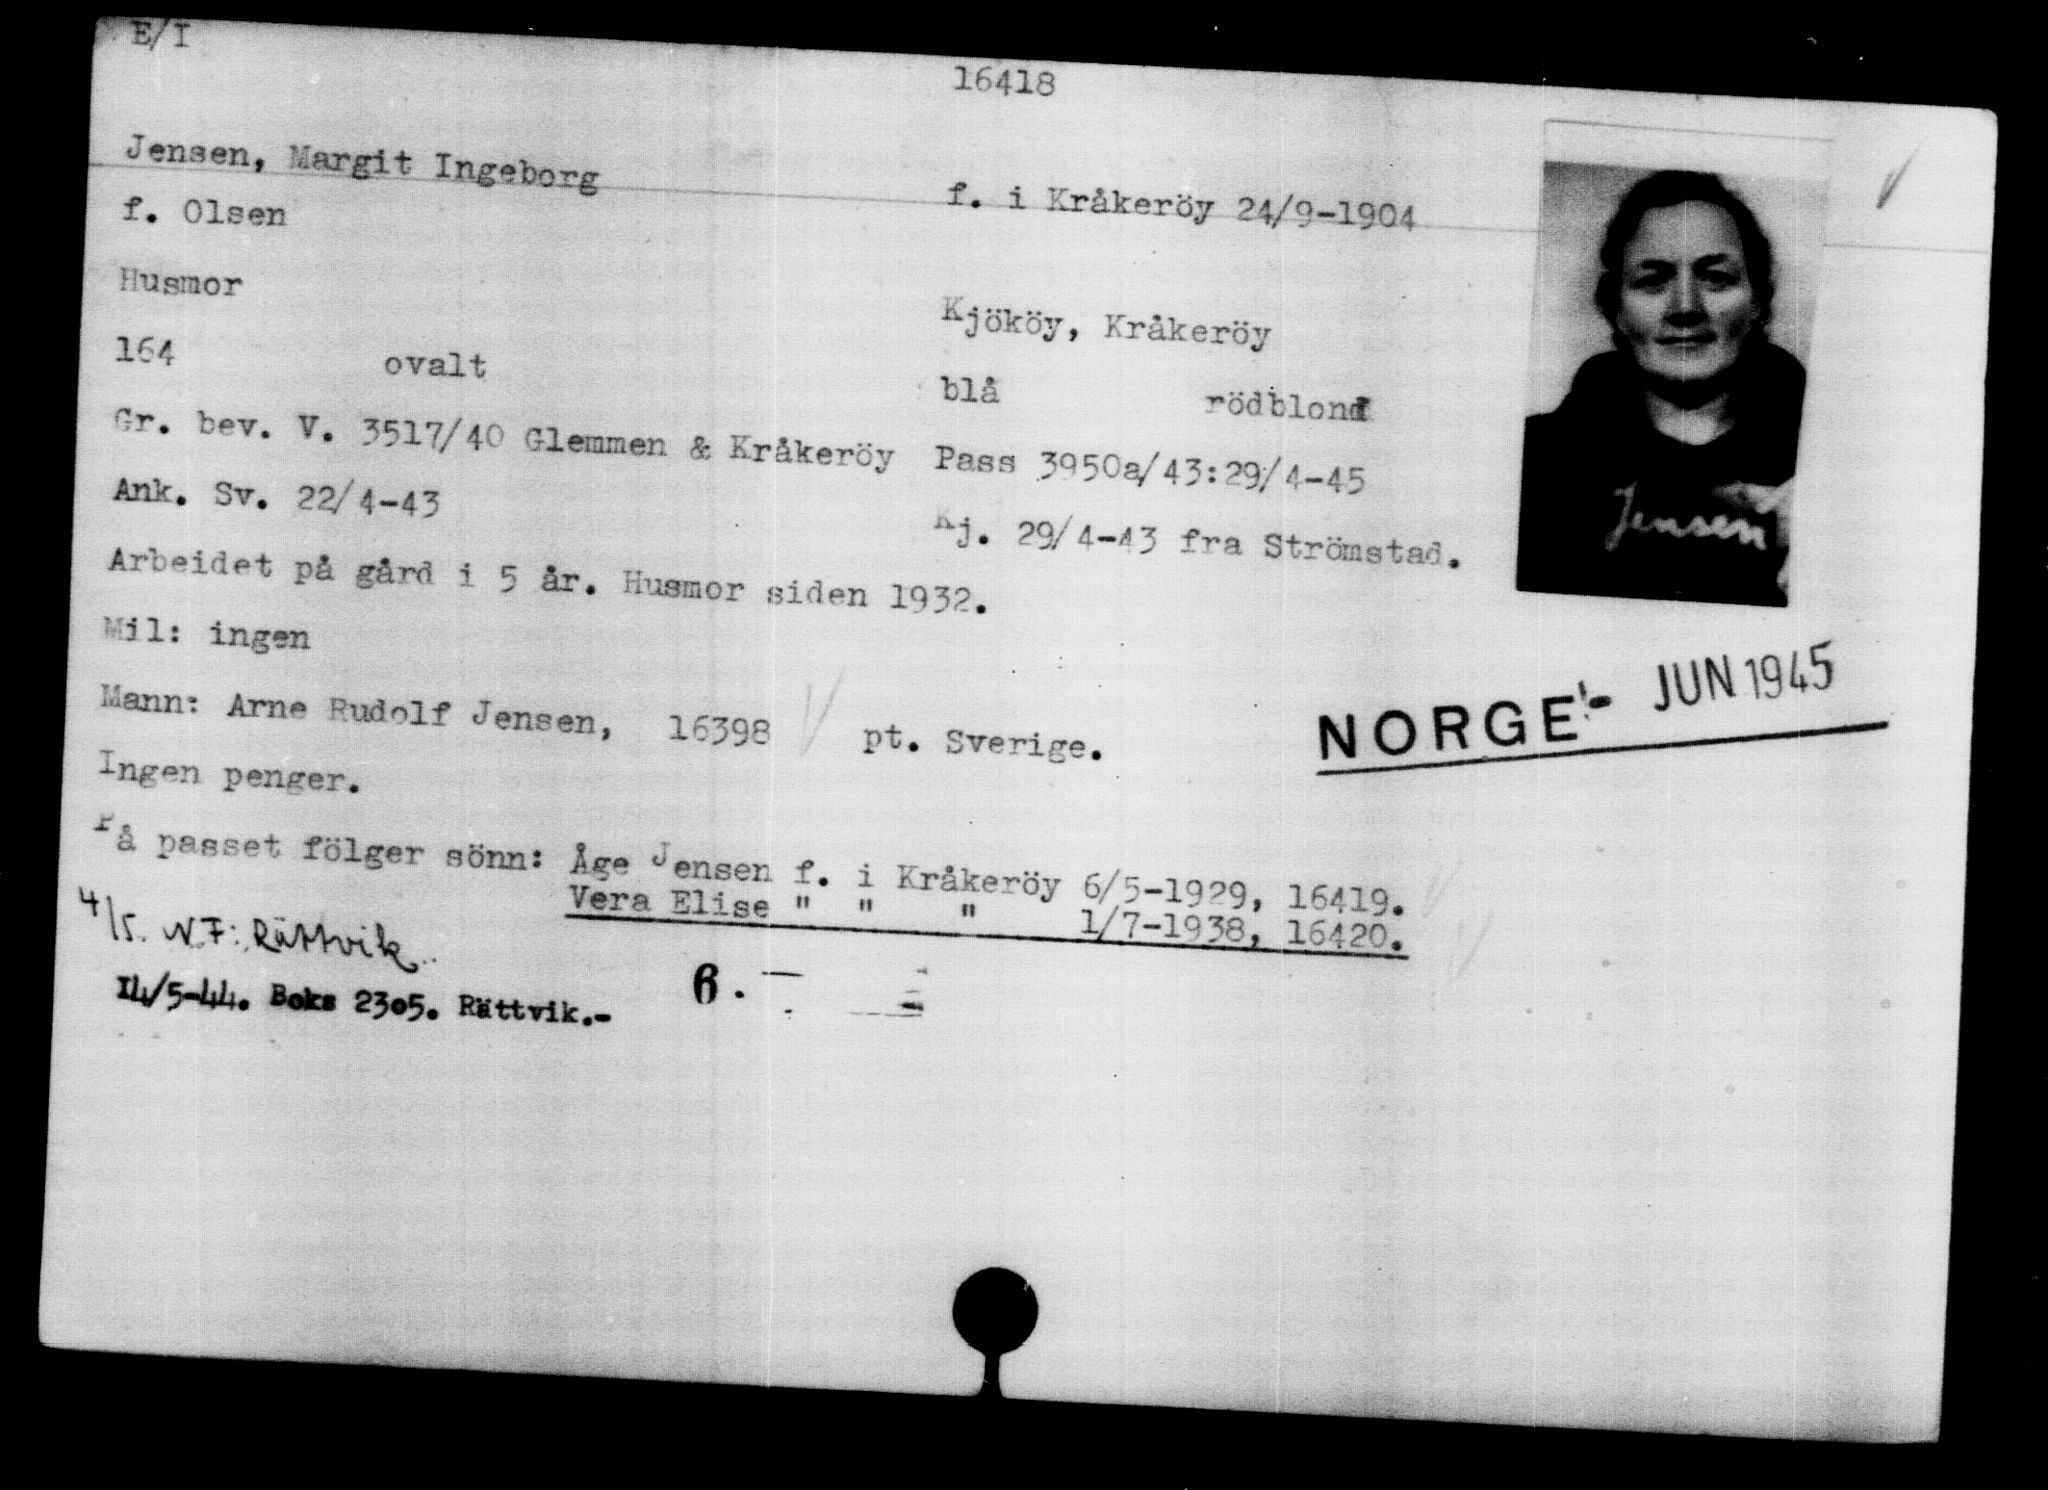 E/I
16418
Jensen, Margit Ingeborg
f. i Kråkeröy 24/9-1904
f. Olsen
Husmor
Kjököy, Kråkeröy
164 ovalt
blå rödblond
Gr. bev. V. 3517/40 Glemmen & Kråkeröy
Pass 3950a/43:29/4-45
Ank. Sv. 22/4-43
Kj. 29/4-43 fra Strömstad.
Jensen
Arbeidet på gård i 5 år. Husmor siden 1932.
Mil: ingen
NORGE - JUN 1945
Mann: Arne Rudolf Jensen, 16398 pt. Sverige.
Ingen penger.
På passet fölger sönn: Åge Jensen f. i Kråkeröy 6/5-1929, 16419.
Vera Elise " " " 1/7-1938, 16420.
4/5. N.F: Rättvik
14/5-44. Boks 2305. Rättvik.-
6.